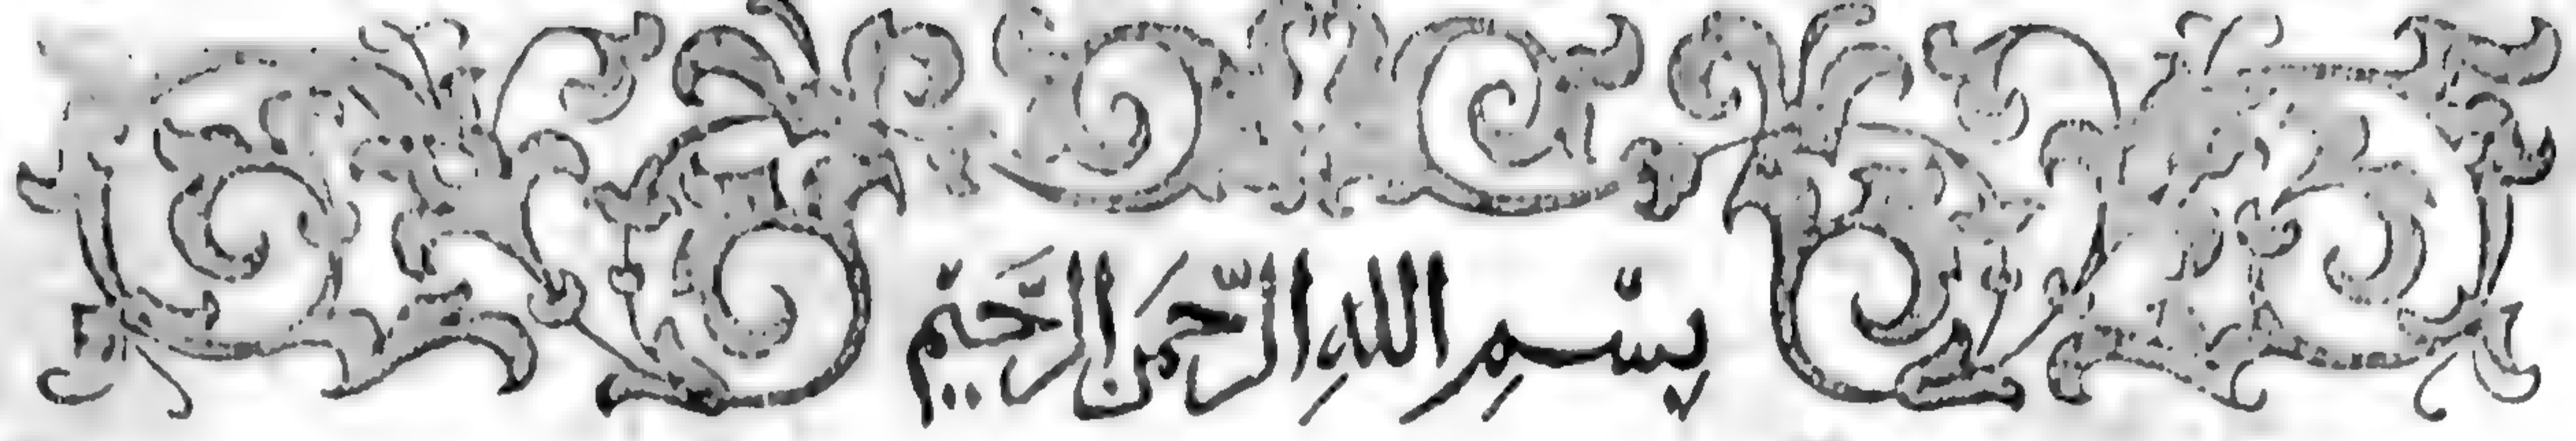 بِسْمِ اللهِ الرَّحْمَنِ الرَّحَيْمِ